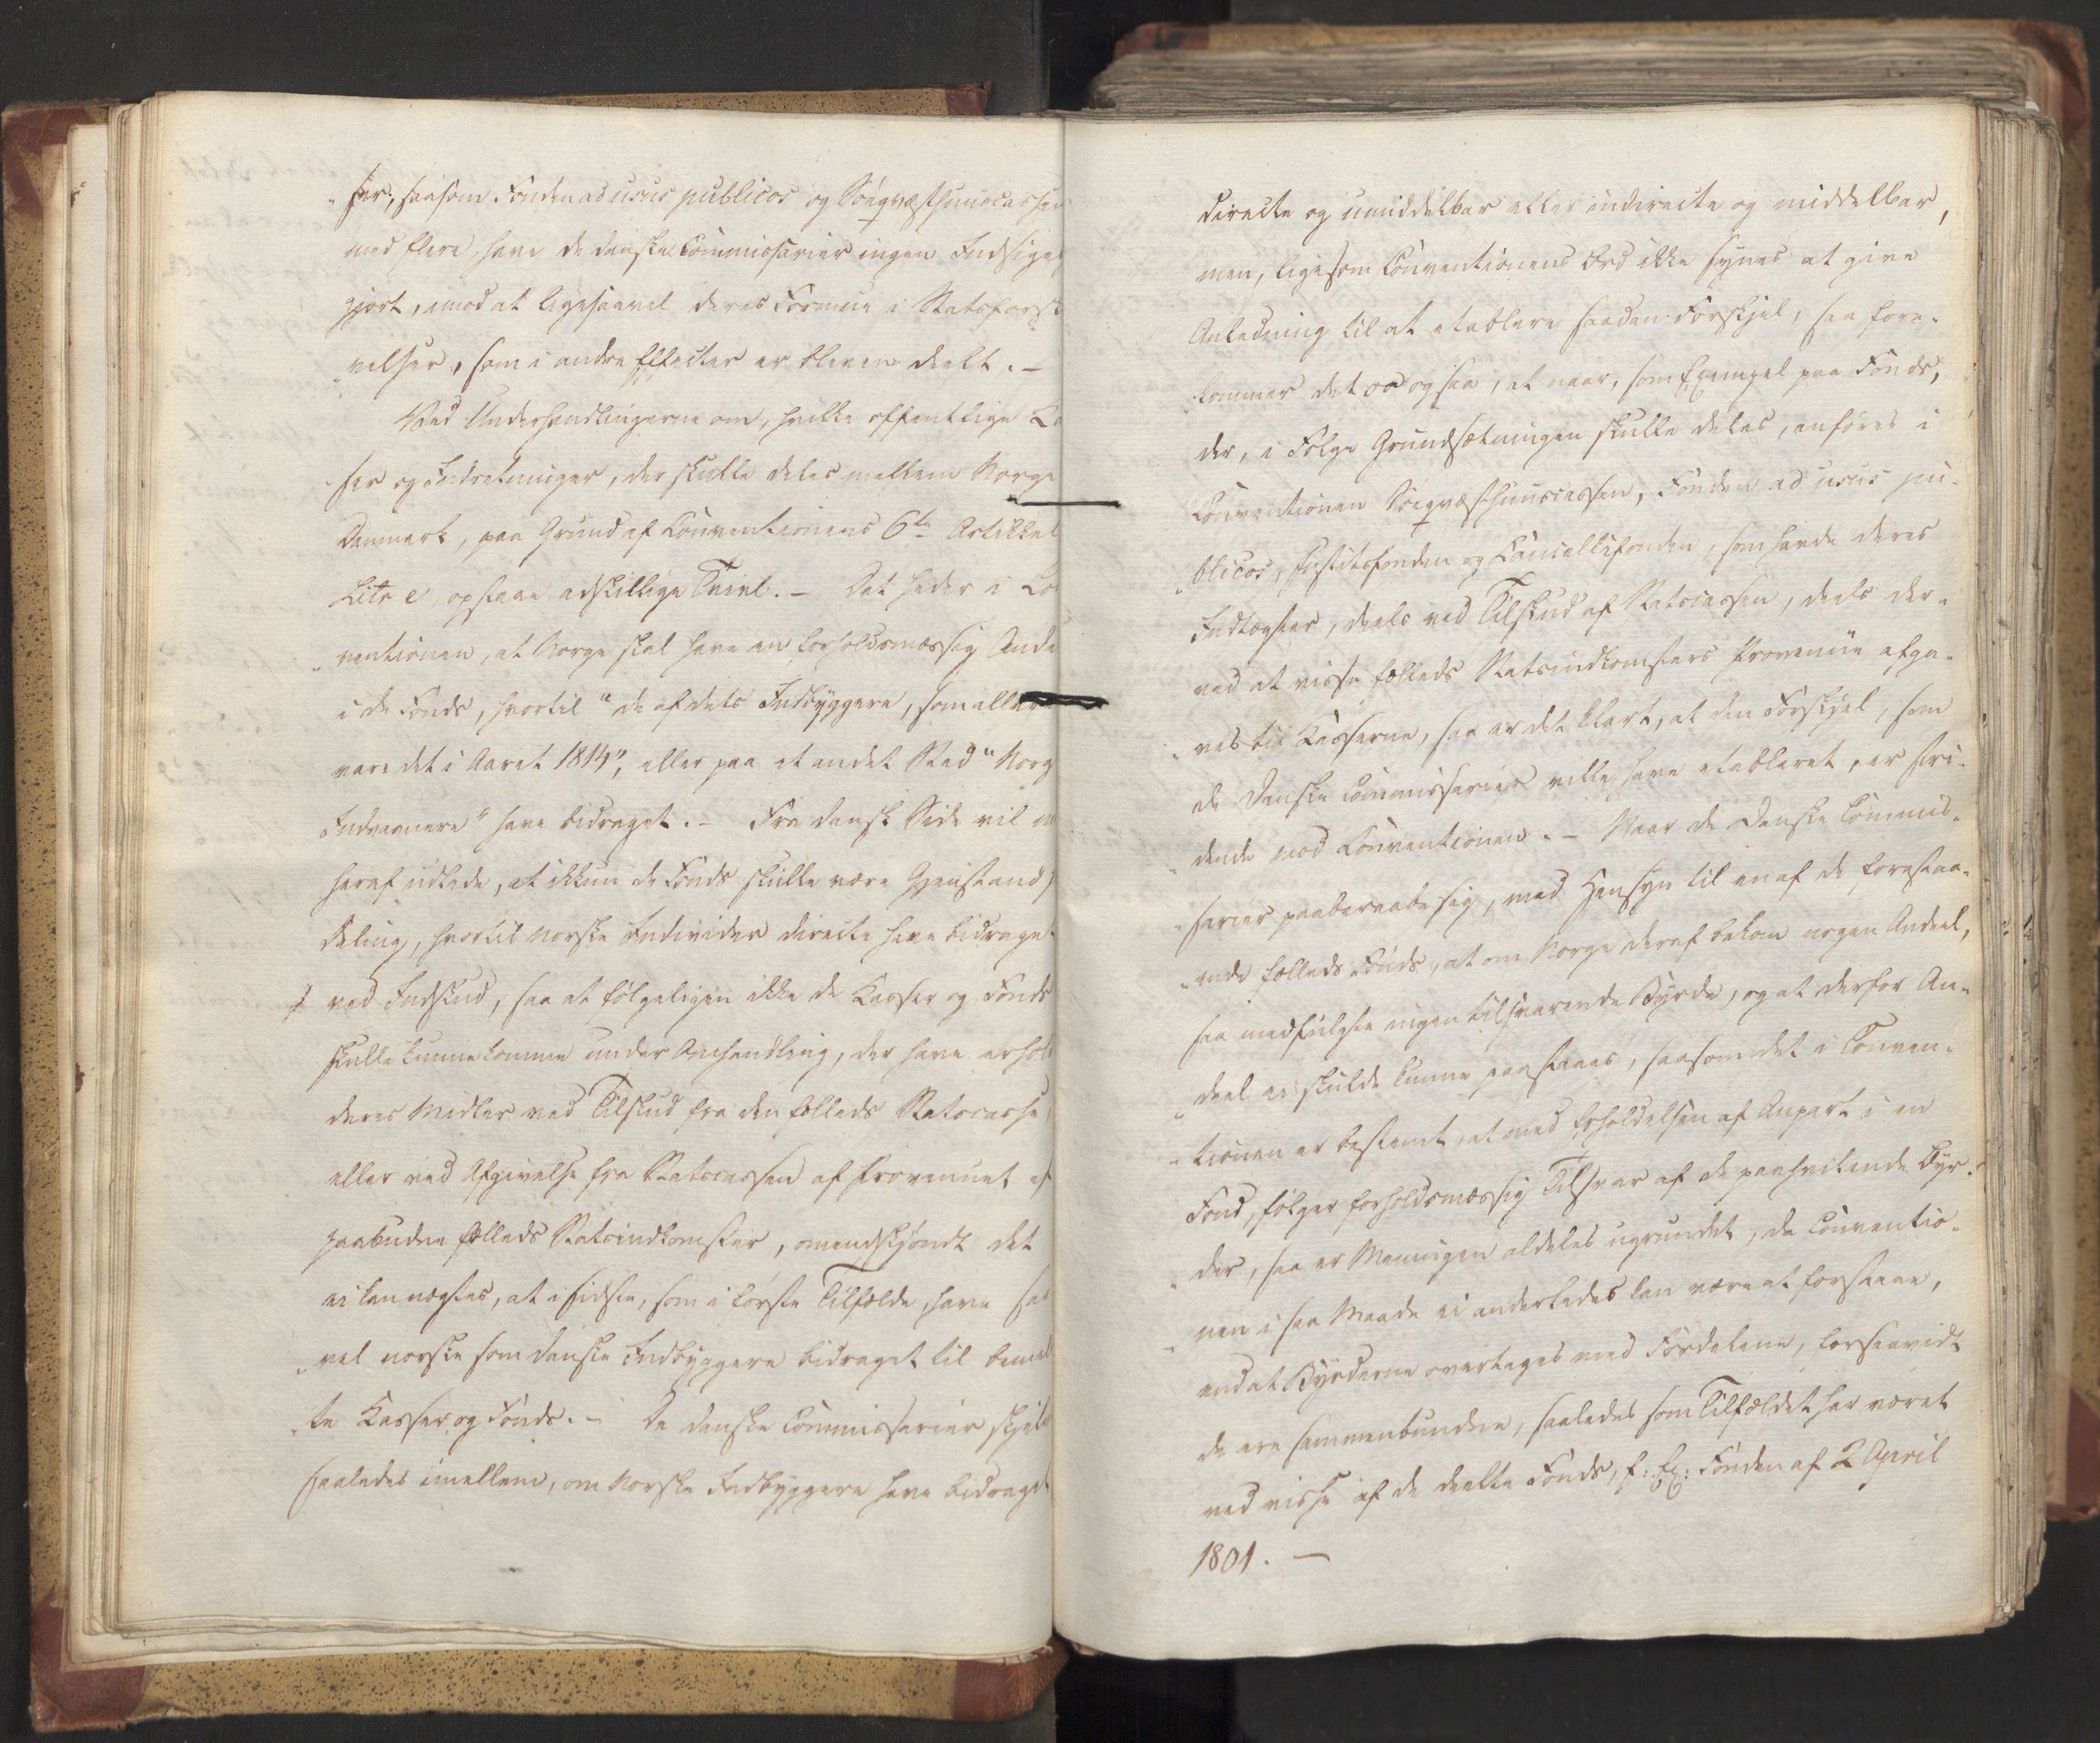 "ser, saasom Fonden ad usus publicos og Söeqvæsthuuscassen
med flere, have de danske Commissarier ingen Indsigel
gjort, imod at ligesaavel deres Formue i Statsforsk
"velser, som i andre Effecter er bleven deelt. –
Ved Underhandlingerne om, hvilke offentlige Ca
"ser og Indretninger, der skulle deles mellem Norge
Danmark, paa Grund af Conventionens 6te Artikkel
Litr e, opstaae adskillige Tvivl. – Det heder i Co
"ventionen, at Norge skal have en forholdsmæssig Ande
i de Fonds, hvortil "de af dets Indbyggere, som allere
vare det i Aaret 1814", eller paa et andet Sted "Norg
Indvaanere" have bidraget. – Fra dansk Side vil m
heraf udlede, at ikkun de Fonds skulle være Gjenstand f
Deling, hvortil norske Individer directe have bidraget
ved Indskud, saa at fölgeligen ikke de Kasser og Fonds
skulle kunne komme under Omhandling, der have erhol
deres Midler ved Tilskud fra den fælleds Statscasse,
eller ved Afgivelse fra Statscassen af Provenuet af
paabudne fælleds Statsindkomster, omendskjöndt det
ei kan nægtes, at i sidste, som i förste Tilfælde, have saa
"vel norske som danske Indbyggere bidraget til bemel
"te Kasser og Fonds. – De danske Commissarier skjel
saaledes imellem, om Norske Indbyggere have bidraget
directe og umiddelbar eller indirecte og middelbar,
men, ligesom Conventionens Ord ikke synes at give
Anledning til at etablere saadan Forskjel, saa fore-
"kommer det os ogsaa, at naar, som Exempel paa Fonds,
der, i Fölge Grundsætningen skulle deles, anföres i
Conventionen Söeqvæsthuuscassen, Fonden ad usus pu-
"blicos, Justitsfonden og Cancellifonden, som havde deres
Indtægter, deels ved Tilskud af Statscassen, deels der-
ved at visse fælleds Statsindkomsters Provenüe afga-
"ves til Kasserne, saa er det klart, at den Forskjel, som
de Danske Commissarier ville have etableret, er stri-
"dende mod Conventionen. – Naar de Danske Commis-
"sarier paaberaabe sig, med Hensyn til en af de forestaa-
"ende fælleds Fonds, at om Norge deraf bekom nogen Andeel,
saa medfulgte ingen tilsvarende Byrde, og at derfor An-
"deel ei skulde kunne paastaaes, saasom det i Conven-
"tionen er bestemt, at med Erholdelsen af Anpart i en
Fond, fölger forholdsmæssig Tilsvar af de paahvilende Byr-
"der, saa er Meningen aldeles ugrundet, da Conventio-
"nen i saa Maade ei anderledes kan være at forstaae,
end at Byrderne overtages med Fordelene, forsaavidt
de ere sammenbundne, saaledes som Tilfældet har været
ved visse af de deelte Fonds, f: Ex: Fonden af 2 April
1801. –